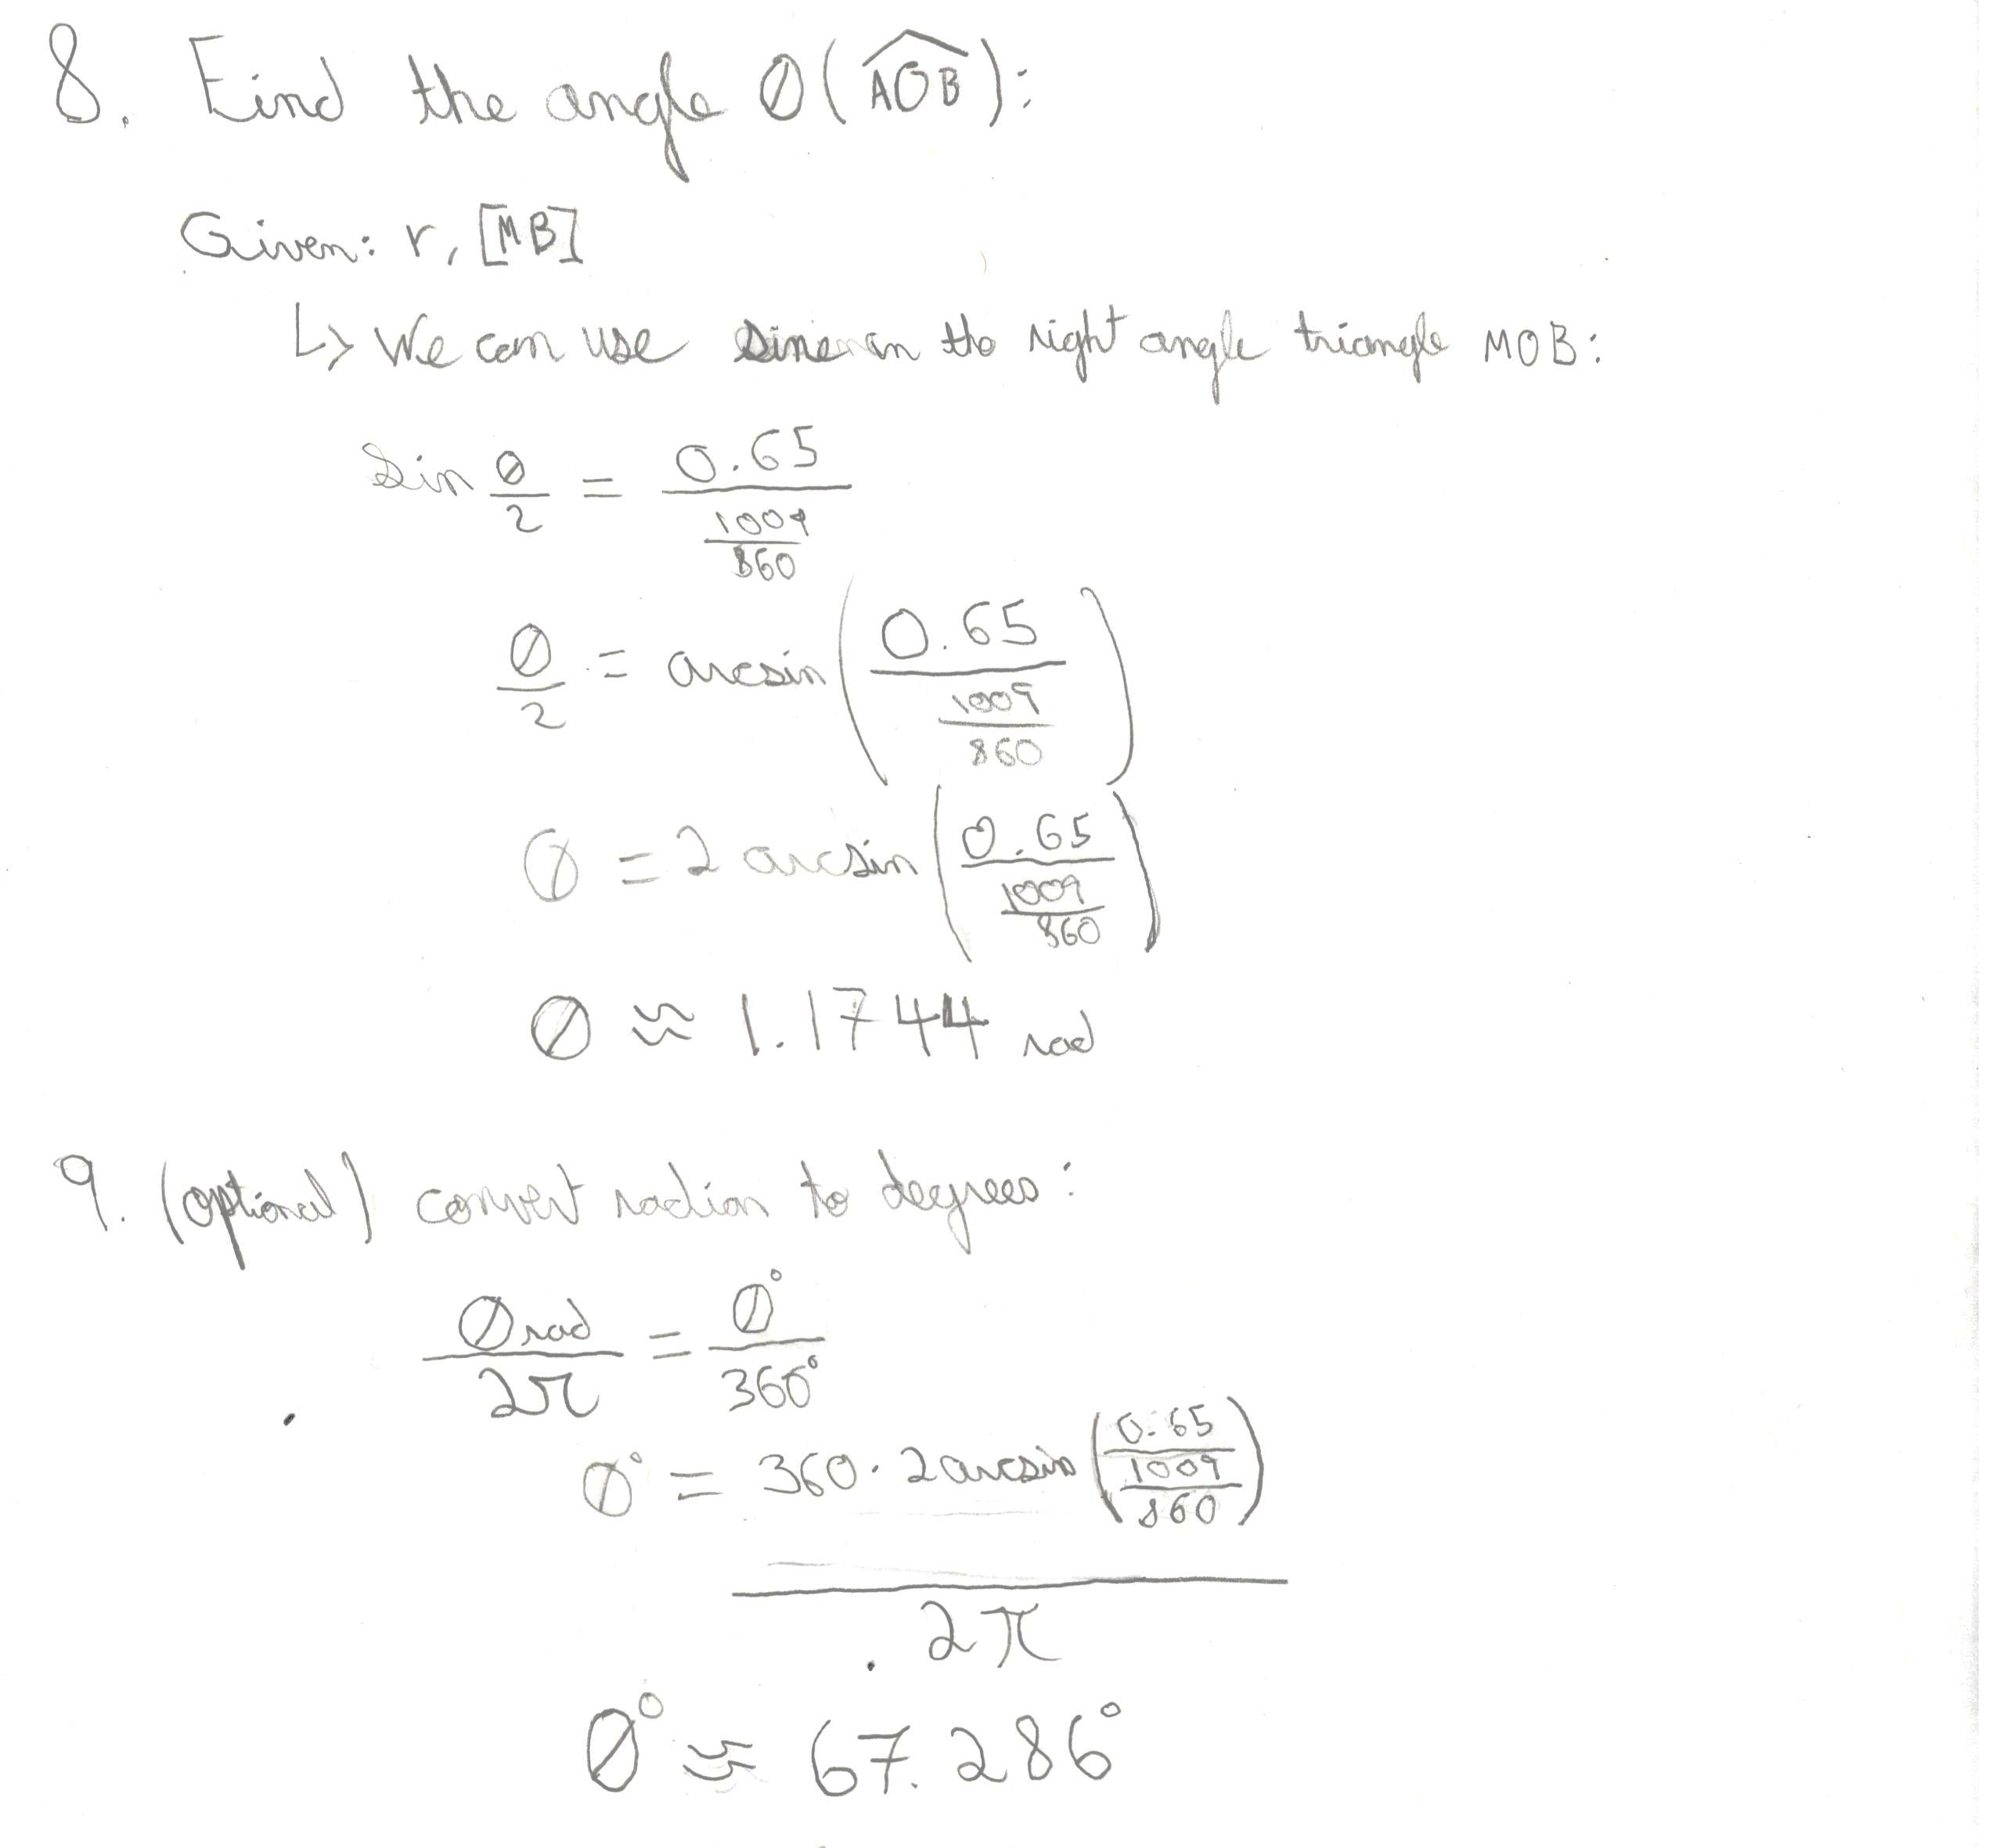 8. Find the angle θ(AOB):
Given: r, [MB]
↳ We can use sine in the right angle triangle MOB:
sin θ/2 = 0.65/(1009/860)
θ/2 = arcsin(0.65/(1009/860))
θ = 2 arcsin(0.65/(1009/860))
θ ≈ 1.1744 rad
9. (optional) convert radian to degrees:
θrad/2π = θ°/360°
θ° = 360·2arcsin(0.65/(1009/860))/2π
θ° ≈ 67.286°